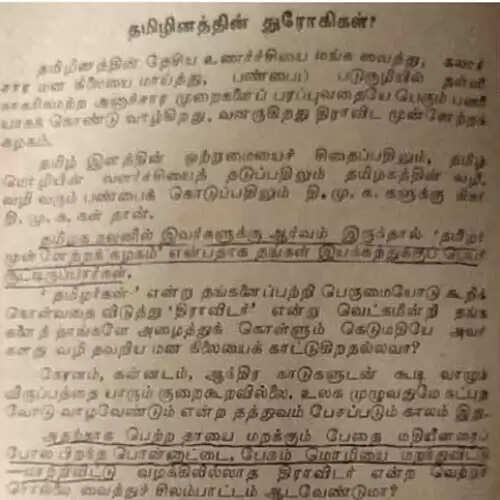 தமிழினத்தின் துரோகிகள்?
தமிழினத்தின் தேசிய உணர்ச்சியை மங்க வைத்து, கலாச்
சார மன நிலையை மாய்த்து, பண்பைப் படுகுழியில் தள்ளி
நாகரிகமற்ற அனாச்சார முறைகளைப் பரப்புவதையே பெரும் பணி
யாகக் கொண்டு வாழ்கிறது, வளருகிறது திராவிட முன்னேற்றக்
கழகம்.
தமிழ் இனத்தின் ஒற்றுமையைச் சிதைப்பதிலும், தமிழ்
மொழியின் வளர்ச்சியைத் தடுப்பதிலும் தமிழகத்தின் வழி
வழி வரும் பண்பைக் கொடுப்பதிலும் தி. மு. க. களுக்கு நிகர்
தி. மு. க. கள் தான்.
தமிழக நலனில் இவர்களுக்கு ஆர்வம் இருந்தால் 'தமிழர்
முன்னேற்றக் கழகம்' என்பதாக தங்கள் இயக்கத்துக்குப் பெயர்
சூட்டிருப்பார்கள்.
'தமிழர்கள்' என்று தங்களைப்பற்றி பெருமையோடு கூறிக்
கொள்வதை விடுத்து 'திராவிடர்' என்று வெட்கமின்றி தங்க
களைத் தாங்களே அழைத்துக் கொள்ளும் கெடுமதியே அவர்
களது வழி தவறிய மன நிலையைக் காட்டுகிறதல்லவா?
கேரளம், கன்னடம், ஆந்திர நாடுகளுடன் கூடி வாழும்
விருப்பத்தை யாரும் குறைகூறவில்லை. உலக முழுவதுமே நட்புற
வோடு வாழவேண்டும் என்ற தத்துவம் பேசப்படும் காலம் இது.
அதற்காக பெற்ற தாயை மறக்கும் பேதை மதியினரைப்
போல பிறந்த பொன்னாட்டை, பேசும் மொழியை மறந்துவிட்டு
மாற்றிவிட்டு வழக்கிலில்லாத திராவிடர் என்ற வெற்றுச்
சொல்லை வைத்துச் சிலம்பாட்டம் ஆடவேண்டுமா?